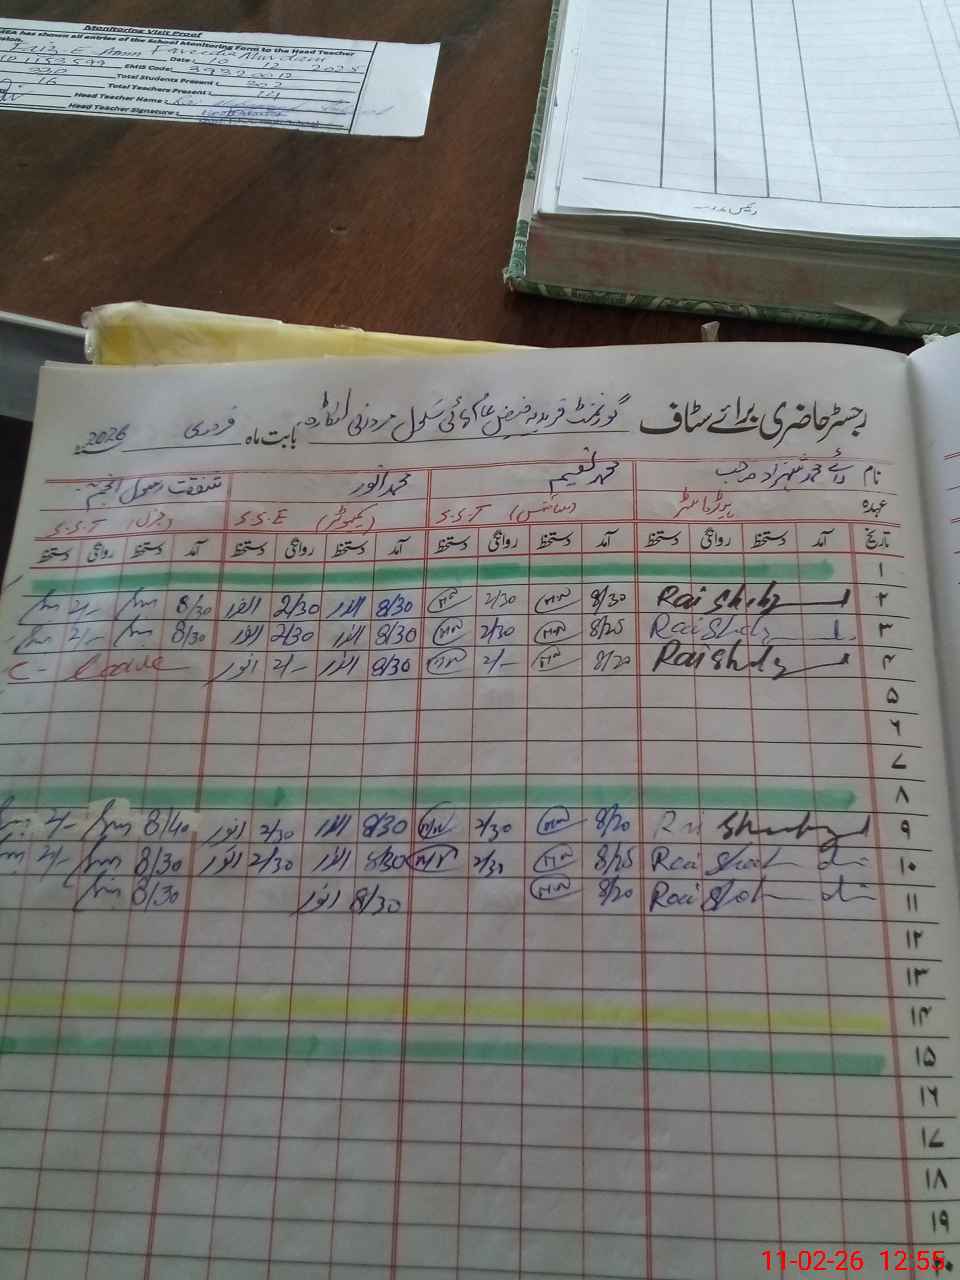 Monitoring Visit Proof
MEA has shown all entries of the School Monitoring Form to the Head Teacher
Date: 10 12 2025
EMIS Code: 39320012
Total Students Present:
16 Total Teachers Present: 14
Head Teacher Name:
Head Teacher Signature:
رجسٹر حاضری برائے سٹاف گورنمنٹ فریدیہ فیض عام ہائی سکول مردانی اوکاڑہ بابت ماہ فروری 2026
نام رائے محمد شہزاد صاحب محمد نعیم محمد انور شفقت رسول انجم
عہدہ ہیڈ ماسٹر S.S.T (سائنس) S.S.E (کمپیوٹر) S.S.T (جنرل)
تاریخ آمد دستخط روانگی دستخط آمد دستخط روانگی دستخط آمد دستخط روانگی دستخط آمد دستخط روانگی دستخط
۱
۲ Rai Shahz 8/30 MN 2/30 MN 8/30 انور 2/30 انور 8/30 2/-
۳ Rai Shahz 8/25 MN 2/30 MN 8/30 انور 2/30 انور 8/30 2/-
۴ Rai Shahz 8/20 MN 2/- MN 8/30 انور 2/- انور C- Leave
۵
۶
۷
۸
۹ Rai Shahz 8/20 MN 2/30 MN 8/30 انور 2/30 انور 8/40 2/-
۱۰ Rai Shah 8/25 MN 2/30 MN 8/30 انور 2/30 انور 8/30 2/-
۱۱ Rai Shah 8/20 MN 8/30 انور 8/30
۱۲
۱۳
۱۴
۱۵
۱۶
۱۷
۱۸
۱۹
۲۰
11-02-26 12:55